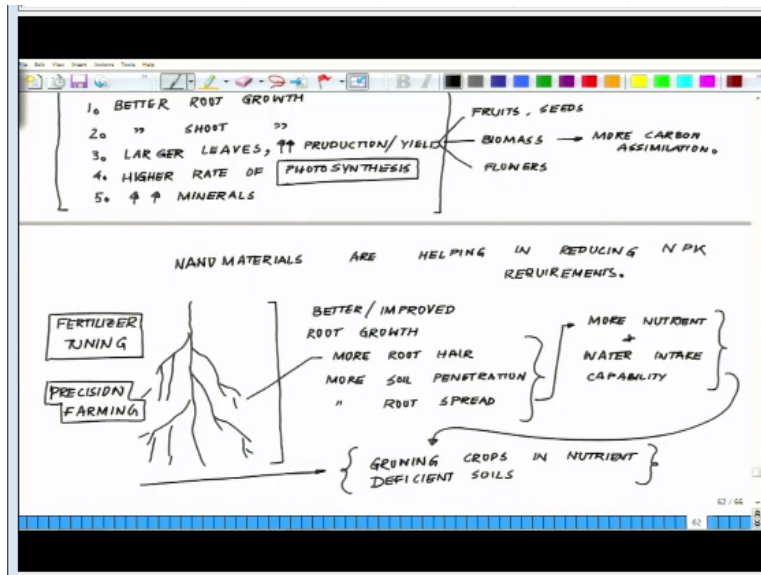 File Edit View Insert Actions Tools Help
1. BETTER ROOT GROWTH
2. " SHOOT "
3. LARGER LEAVES, ↑↑ PRUDUCTION/YIELD
4. HIGHER RATE OF PHOTOSYNTHESIS
5. ↑ ↑ MINERALS
FRUITS, SEEDS
BIOMASS → MORE CARBON
ASSIMILATION.
FLOWERS
NANOMATERIALS ARE HELPING IN REDUCING NPK
REQUIREMENTS.
FERTILIZER
TUNING
PRECISION
FARMING
BETTER/IMPROVED
ROOT GROWTH
MORE ROOT HAIR
MORE SOIL PENETRATION
" ROOT SPREAD
MORE NUTRIENT
+
WATER INTAKE
CAPABILITY
GROWING CROPS IN NUTRIENT
DEFICIENT SOILS
62 / 66
62